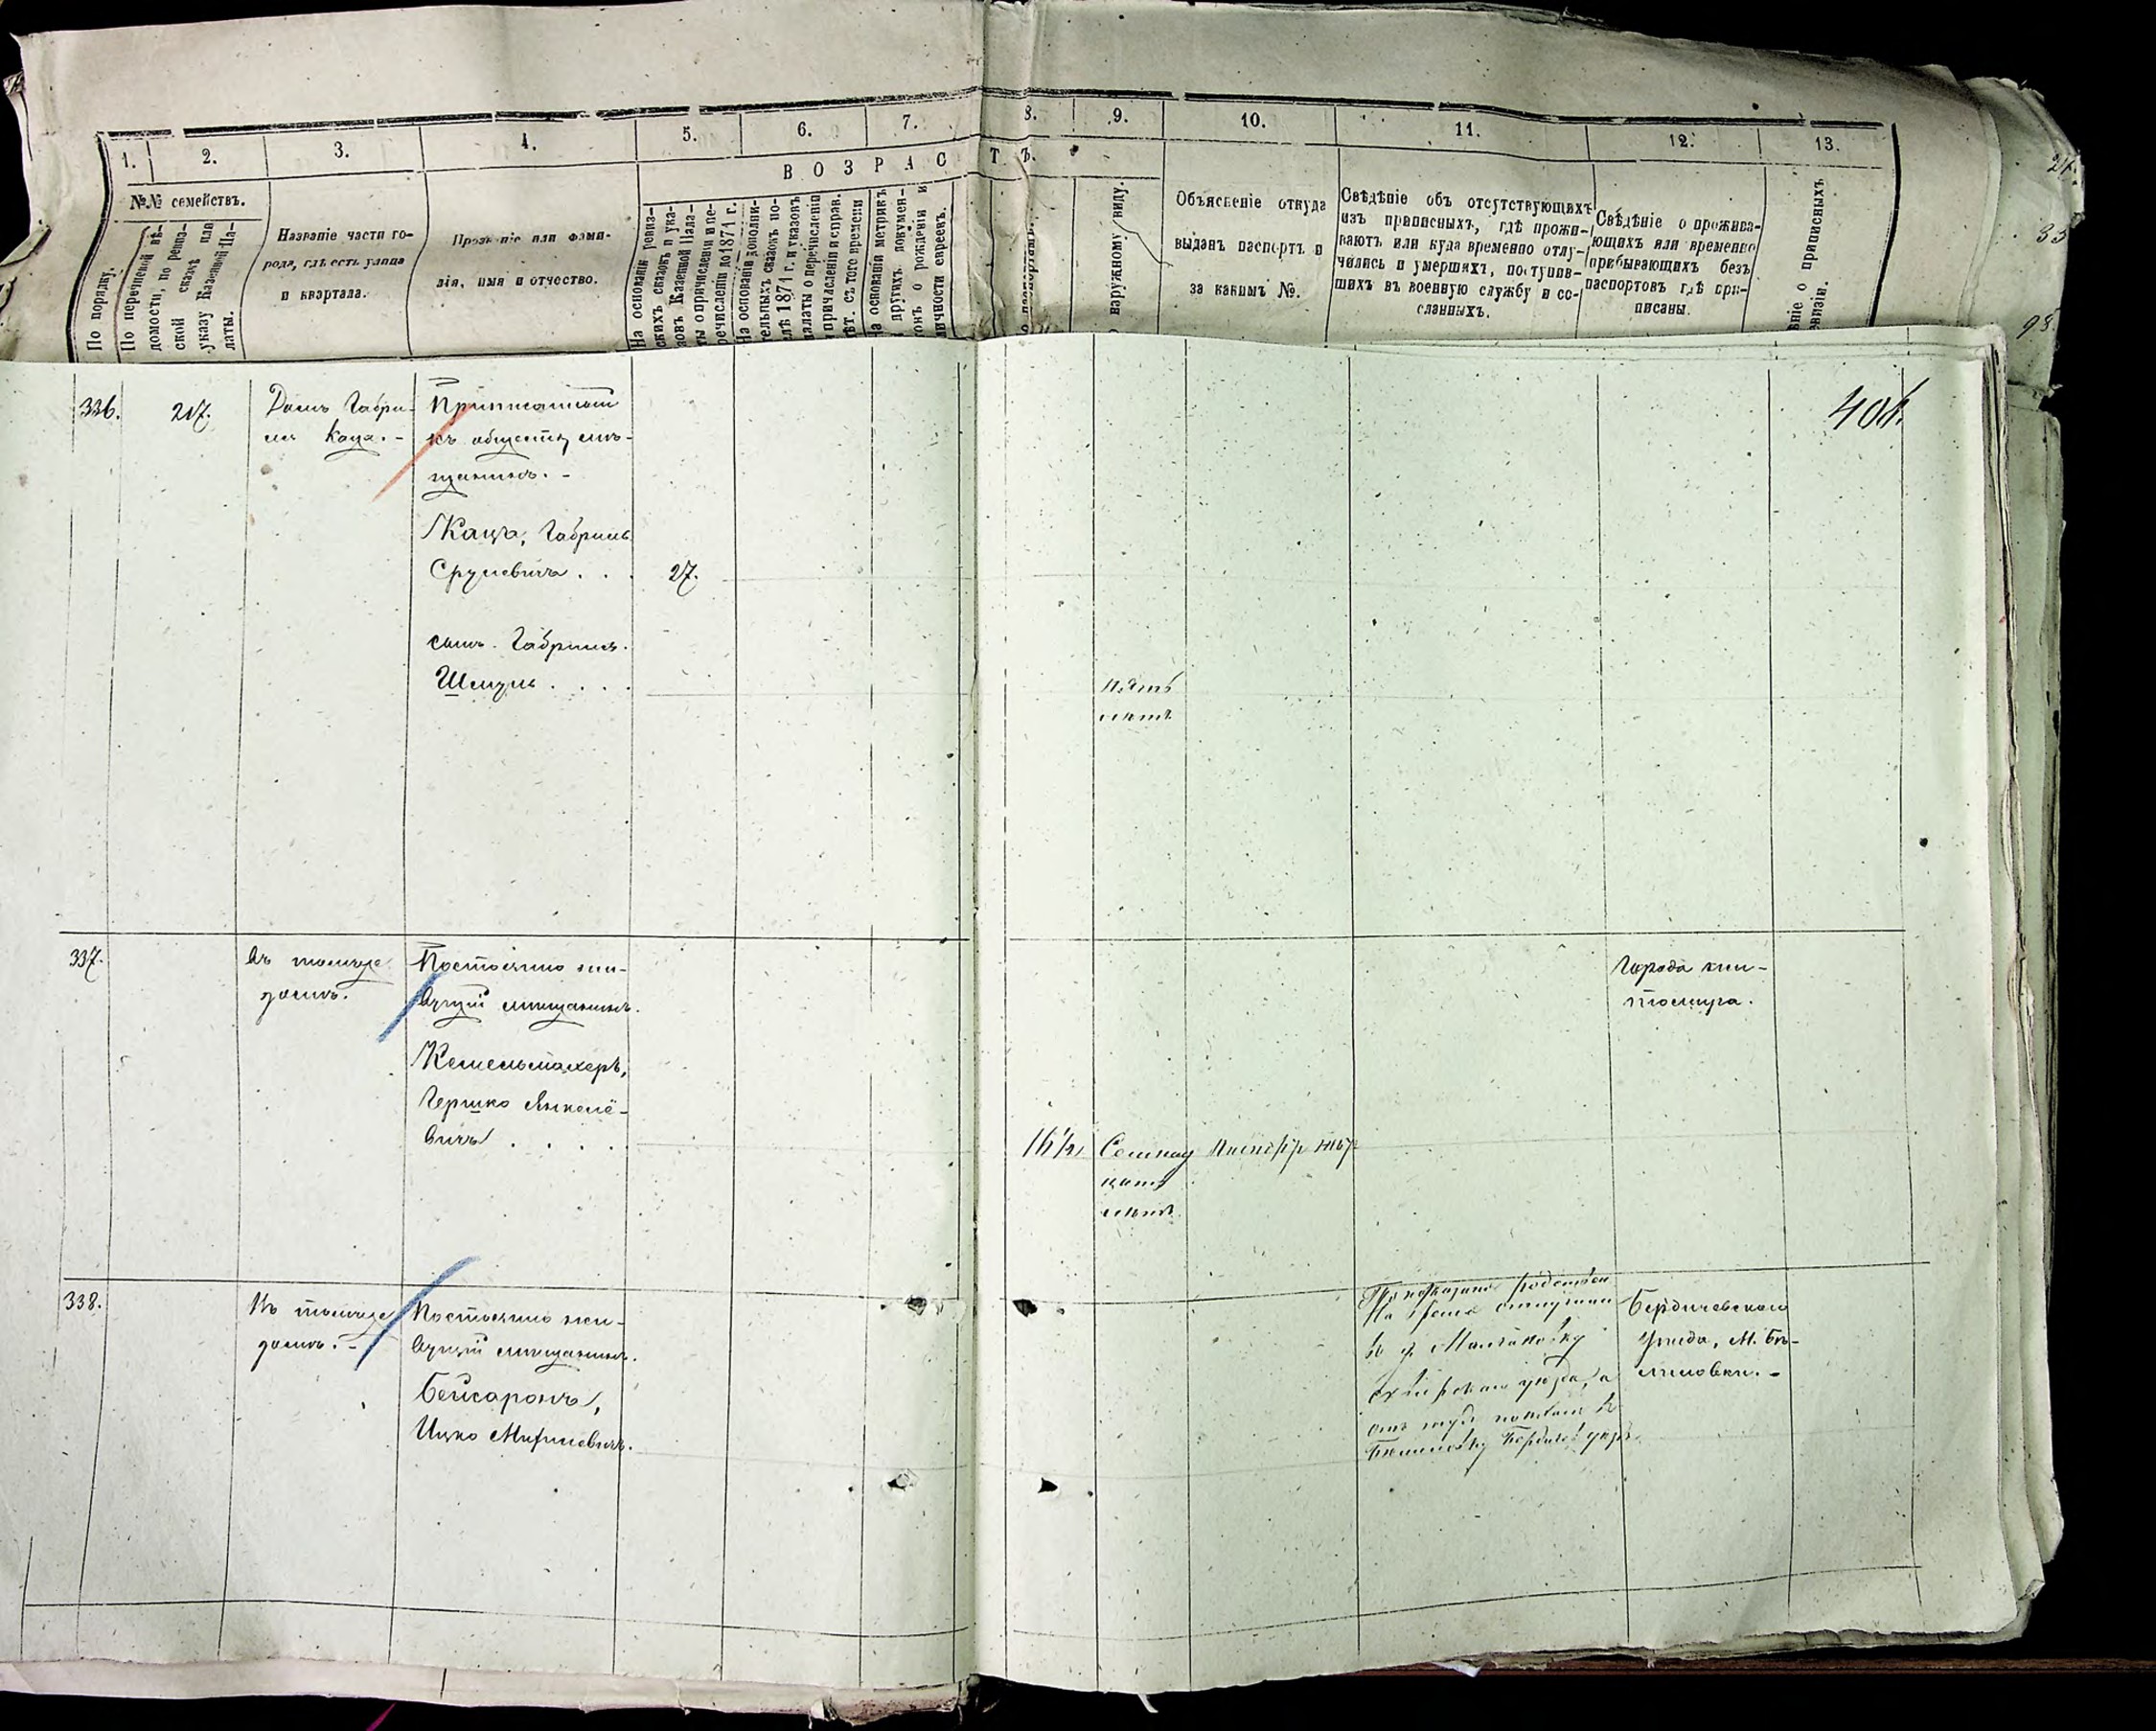 1.
2.
3.
4.
5.
6.
7.
8.
9.
10.
11.
12.
13.
ВОЗРАСТЪ.
По порядку.
№№ семействъ.
По перечневой вѣ-
домости, по ревиз-
ской сказкѣ или
указу Казенной Па-
латы.
Названіе части го-
рода, гдѣ есть улица
и квартала.
Прозваніе или фами-
лія, имя и отчество.
На основаніи ревиз-
скихъ сказокъ и ука-
зовъ Казенной Пала-
ты о причисленіи и пе-
речисленіи до 1874 г.
На основаніи дополни-
тельныхъ сказокъ по-
слѣ 1874 г. и указовъ
палаты о перечисленіи
и причисленіи и справ.
лѣт. съ того времени
На основаніи метрикъ
и другихъ докумен-
о рожденіи и
личности евреевъ.
наружному виду.
Объясненіе откуда
выданъ паспортъ и
за какимъ №.
Свѣдѣніе объ отсутствующихъ
изъ приписныхъ, гдѣ прожи-
ваютъ или куда временно отлу-
чились и умершихъ, поступив-
шихъ въ военную службу и со-
сланныхъ.
Свѣдѣніе о прожива-
ющихъ или временно
прибывающихъ безъ
паспортовъ гдѣ при-
писаны.
о приписныхъ
336.
217.
Домъ Габри-
ля Каца. -
Приписанный
къ обществу мѣ-
щанинъ. -
Кацъ, Габриль
Срулевичъ . . .
27.
сынъ Габриля.
Шмуль . . . .
пять
лѣтъ
401.
337.
Въ томъ же
домѣ.
Постоянно жи-
вущій мѣщанинъ.
Кемельмахеръ,
Гершко Янкеле-
вичъ . . . . .
16 1/2
Семнад
цать
лѣтъ
Города Жи-
томира.
338.
Въ томъ же
домѣ. -
Постоянно жи-
вущій мѣщанинъ.
Бейсаронъ,
Ицко
от туда
уѣзда, а
Бердичевскаго
Уѣзда, М. Бѣ-
лиловки. -